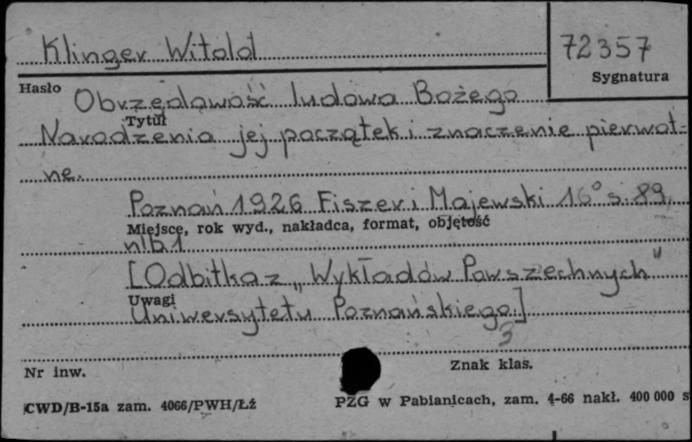 Klinger Witold
72357
Sygnatura
Hasło
Obrzędowość ludowa Bożego
Tytuł
Narodzenia jej początek i znaczenie pierwot-
ne.
Poznań 1926 Fiszer i Majewski 16° s. 89,
Miejsce, rok wyd., nakładca, format, objętość
nlb 1
[Odbitka z „Wykładów Powszechnych"
Uwagi
Uniwersytetu Poznańskiego.]
3
Nr inw.
Znak klas.
CWD/B-15a zam. 4066/PWH/Łź
PZG w Pabianicach, zam. 4-66 nakł. 400 000 s